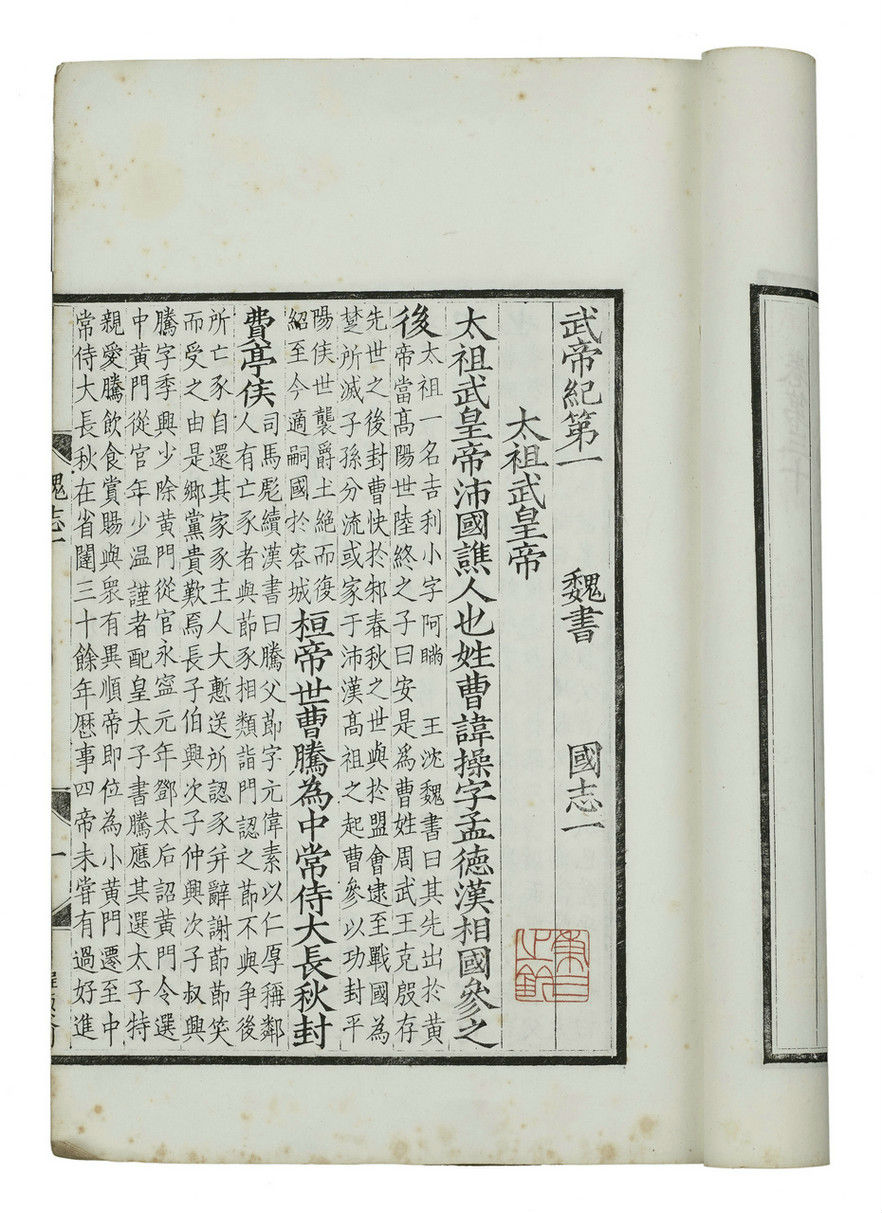 武帝紀第一 魏書 國志一
太祖武皇帝
太祖武皇帝沛國譙人也姓曹諱操字孟德漢相國參之
後
太祖一名吉利小字阿瞞 王沈魏書曰其先出於黃
帝當髙陽世陸終之子曰安是爲曹姓周武王克殷存
先世之後封曹俠於邾春秋之世與於盟會逮至戰國為
楚所滅子孫分流或家于沛漢髙祖之起曹參以功封平
陽侯世襲爵土絕而復
紹至今適嗣國於容城
桓帝世曹騰為中常侍大長秋封
費亭侯
司馬彪續漢書曰騰父節字元偉素以仁厚稱鄰
人有亡豕者與節豕相類詣門認之節不與争後
所亡豕自還其家豕主人大慙送所認豕并辭謝節節笑
而受之由是鄉黨貴歎焉長子伯興次子仲興次子叔興
騰字季興少除黃門從官永寧元年鄧太后詔黃門令選
中黃門從官年少温謹者配皇太子書騰應其選太子特
親愛騰飲食賞賜與衆有異順帝即位為小黃門遷至中
常侍大長秋在省闥三十餘年歷事四帝未嘗有過好進
魏志一
一